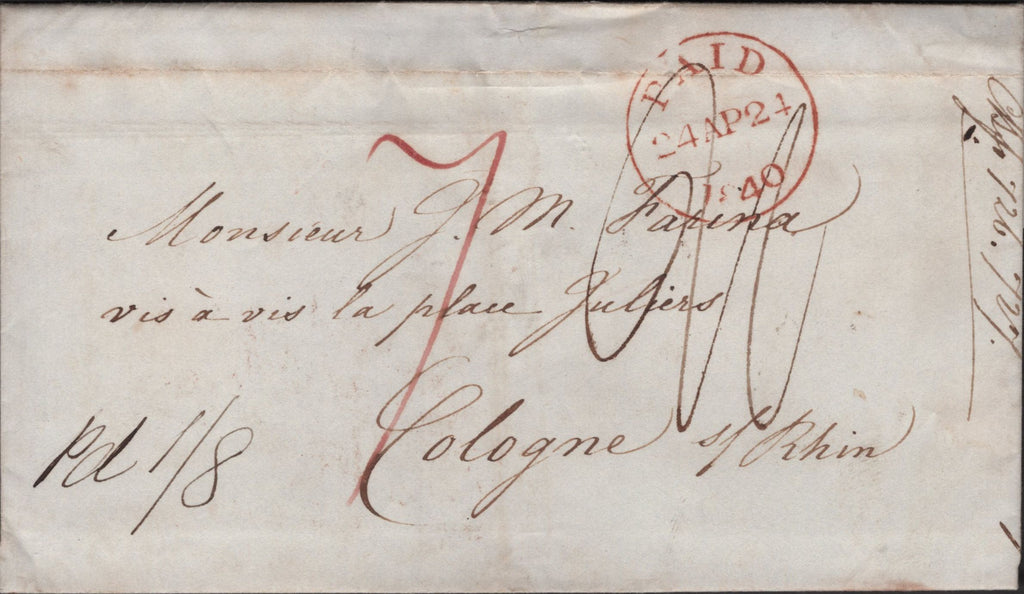 PAID
24 AP 24
1840
Monsieur J. M. Farina
vis à vis la place Juliers
Cologne s/ Rhin
Pd 1/8
7